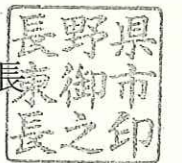 長
長野県
東御市
長之印